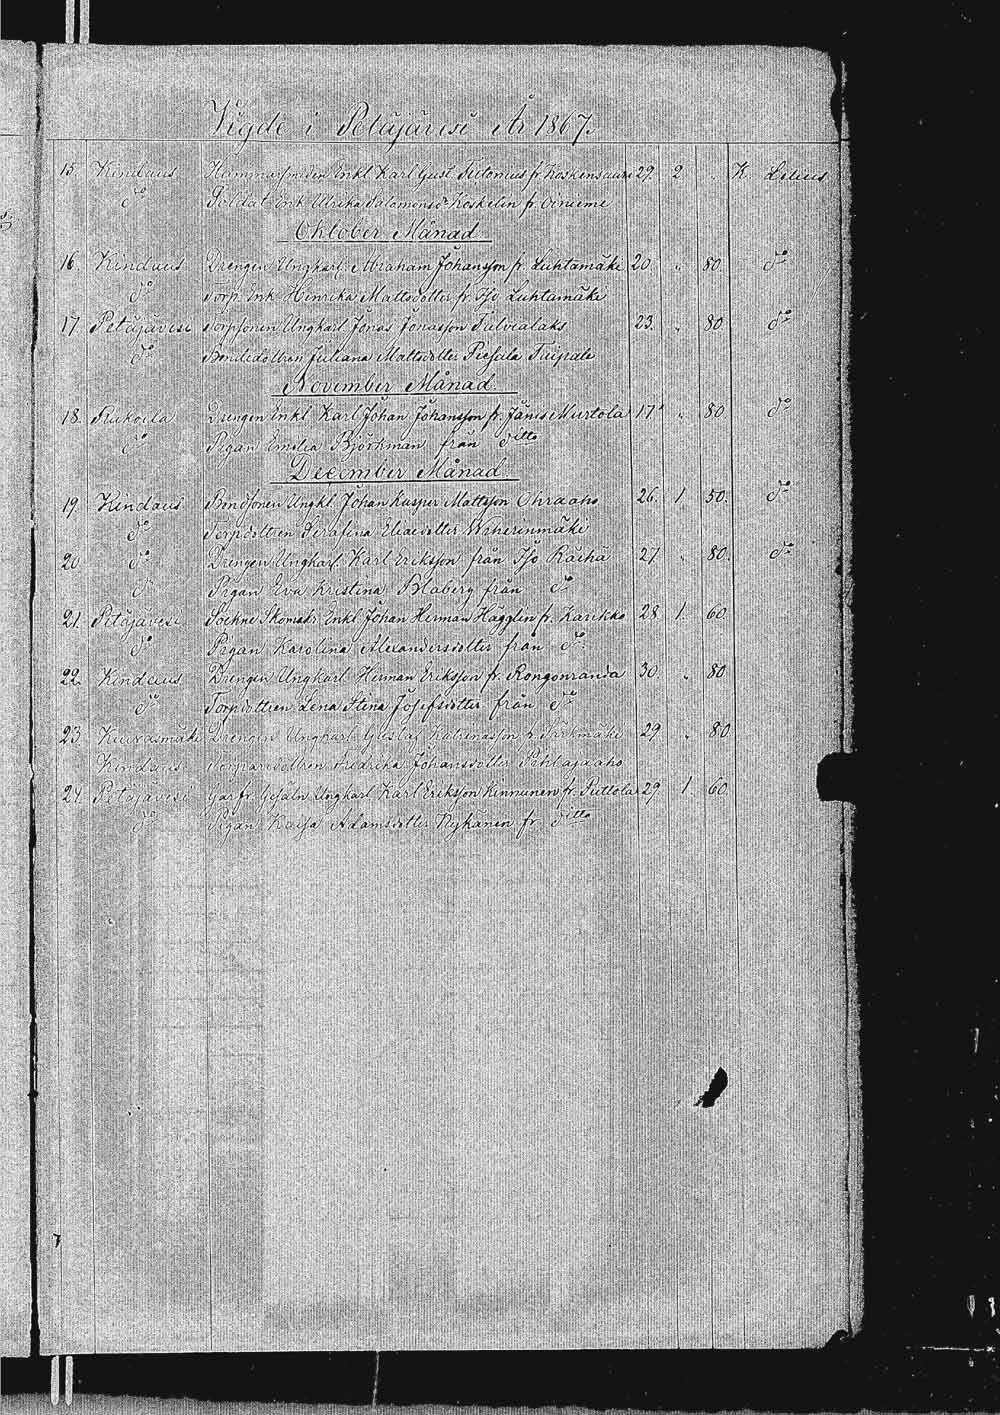 Vigde i Petäjävesi År 1867.
15. Kindaus Enkl Karl Gust. fr. 29. 2 " K. Lilius
do Soldat Enk. Ulrika Salamonsdr Koskelin fr.
Oktober Månad
16. Kindaus Drengen Ungkarl. Abraham Johansson fr. Luhtamäki 20. " 80. do
do Torp. Enk. Henrika Mattsdotter fr. Iso Luhtamäki
17. Petäjävesi Torpsonen Ungkarl Jonas Jonasson 23. " 80. do
do Bondedottren Juliana Mattsdotter Taipale
November Månad
18. Drengen Enkl. Karl Johan Johansson fr. Jänis Murtola 17. " 80. do
do Pigan Emelia Björkman från ditto
December Månad
19. Kindaus Bondsonen Ungkl. Johan Kasper Mattsson Ohraaho 26. 1 50. do
do Torpdottren Serafina Eliaedotter
20. do Drengen Ungkarl. Karl Eriksson från Iso Rärhä 27. " 80. do
do Pigan Eva Kristina Blaberg från do
21. Petäjävesi Sockne Skomak. Enkl. Johan Herman Hägglin fr. Karikko 28. 1. 60.
do Pigan Karolina Alexandersdotter från do
22. Kindaus Drengen Ungkarl Herman Eriksson fr. Rongonranda 30. " 80.
do Torpdottren Lena Stina Josefsdotter från do
23. Kuivasmäki Drengen Ungkarl Gustaf 29. " 80.
Kindaus Torparedottren Fredrika Johansdotter Pihlajaaho
24. Petäjävesi Ungkarl Karl Eriksson Kinnunen fr. Puttola 29. 1. 60.
do Pigan Kaisa Adamsdotter Nykänen fr. ditto